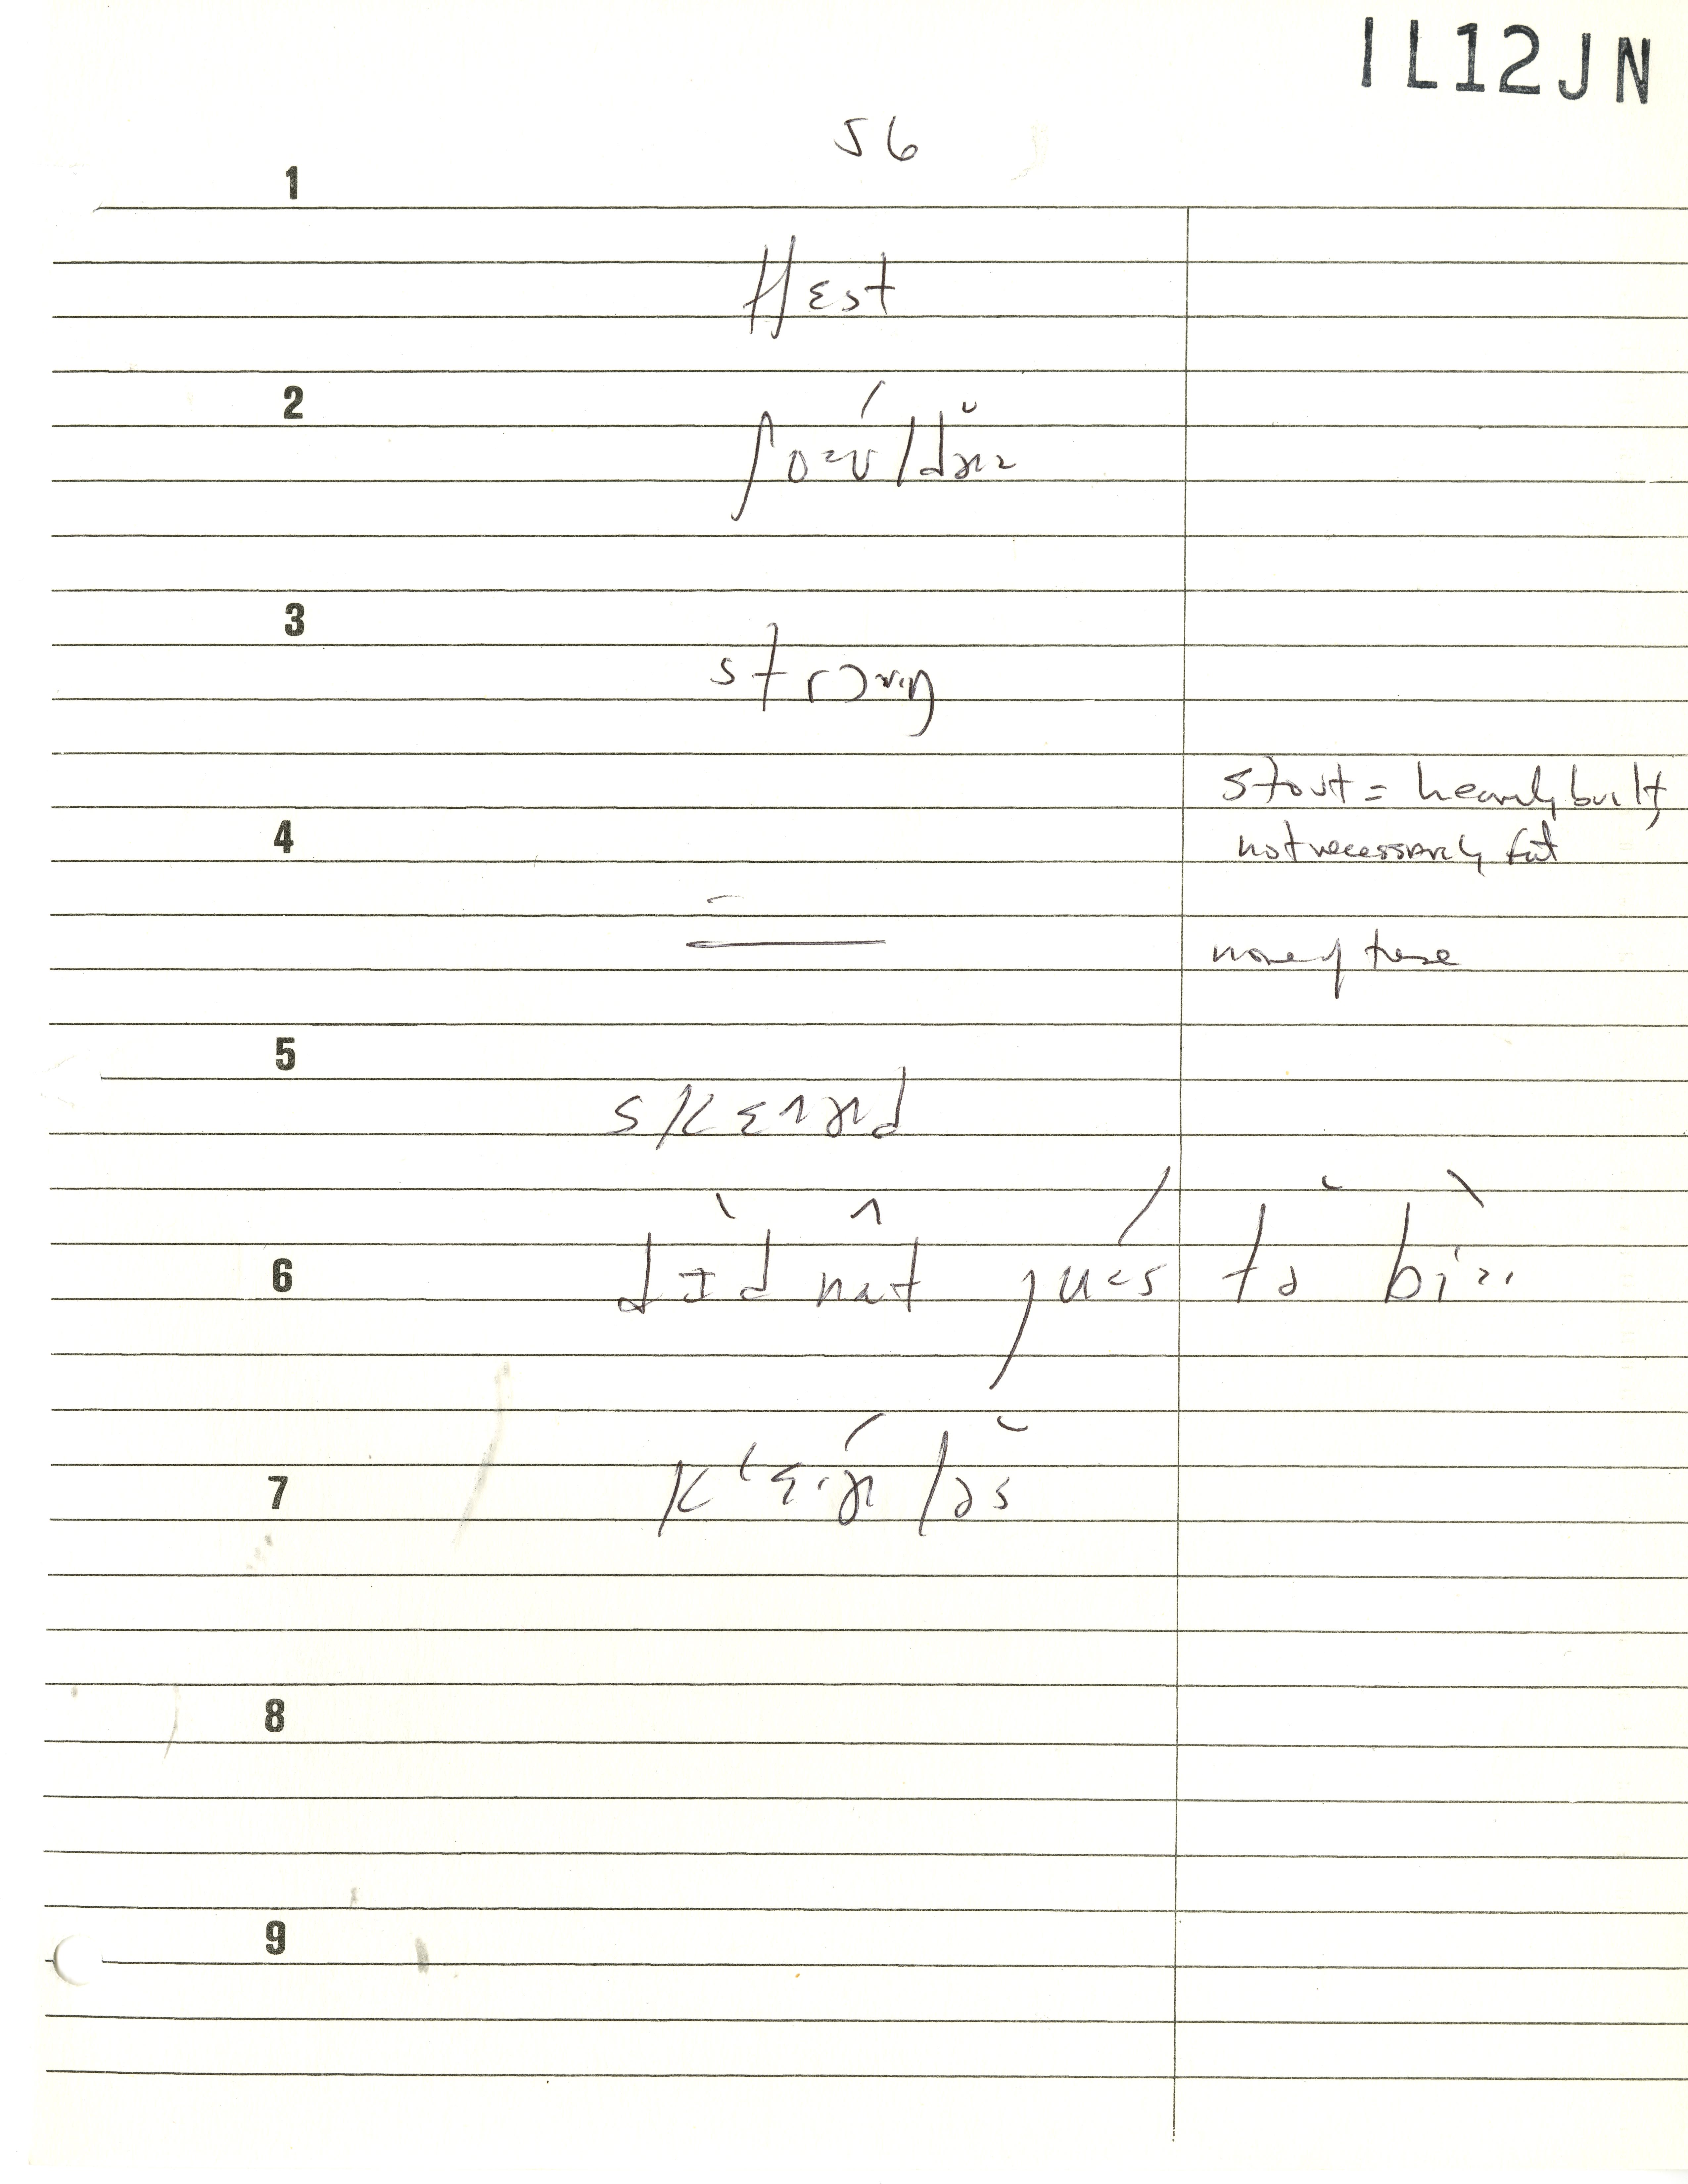 IL12JN
56
1
tʃɛst
2
ʃo<ʊldɚ>
3
strɔ>ʊ>ŋ
stout = heavily built
4
not necessarily fat
none of these
5
skɛɚd
6
dɪd nɑt jus tə bi>
7
kʻɛɚləs
8
9